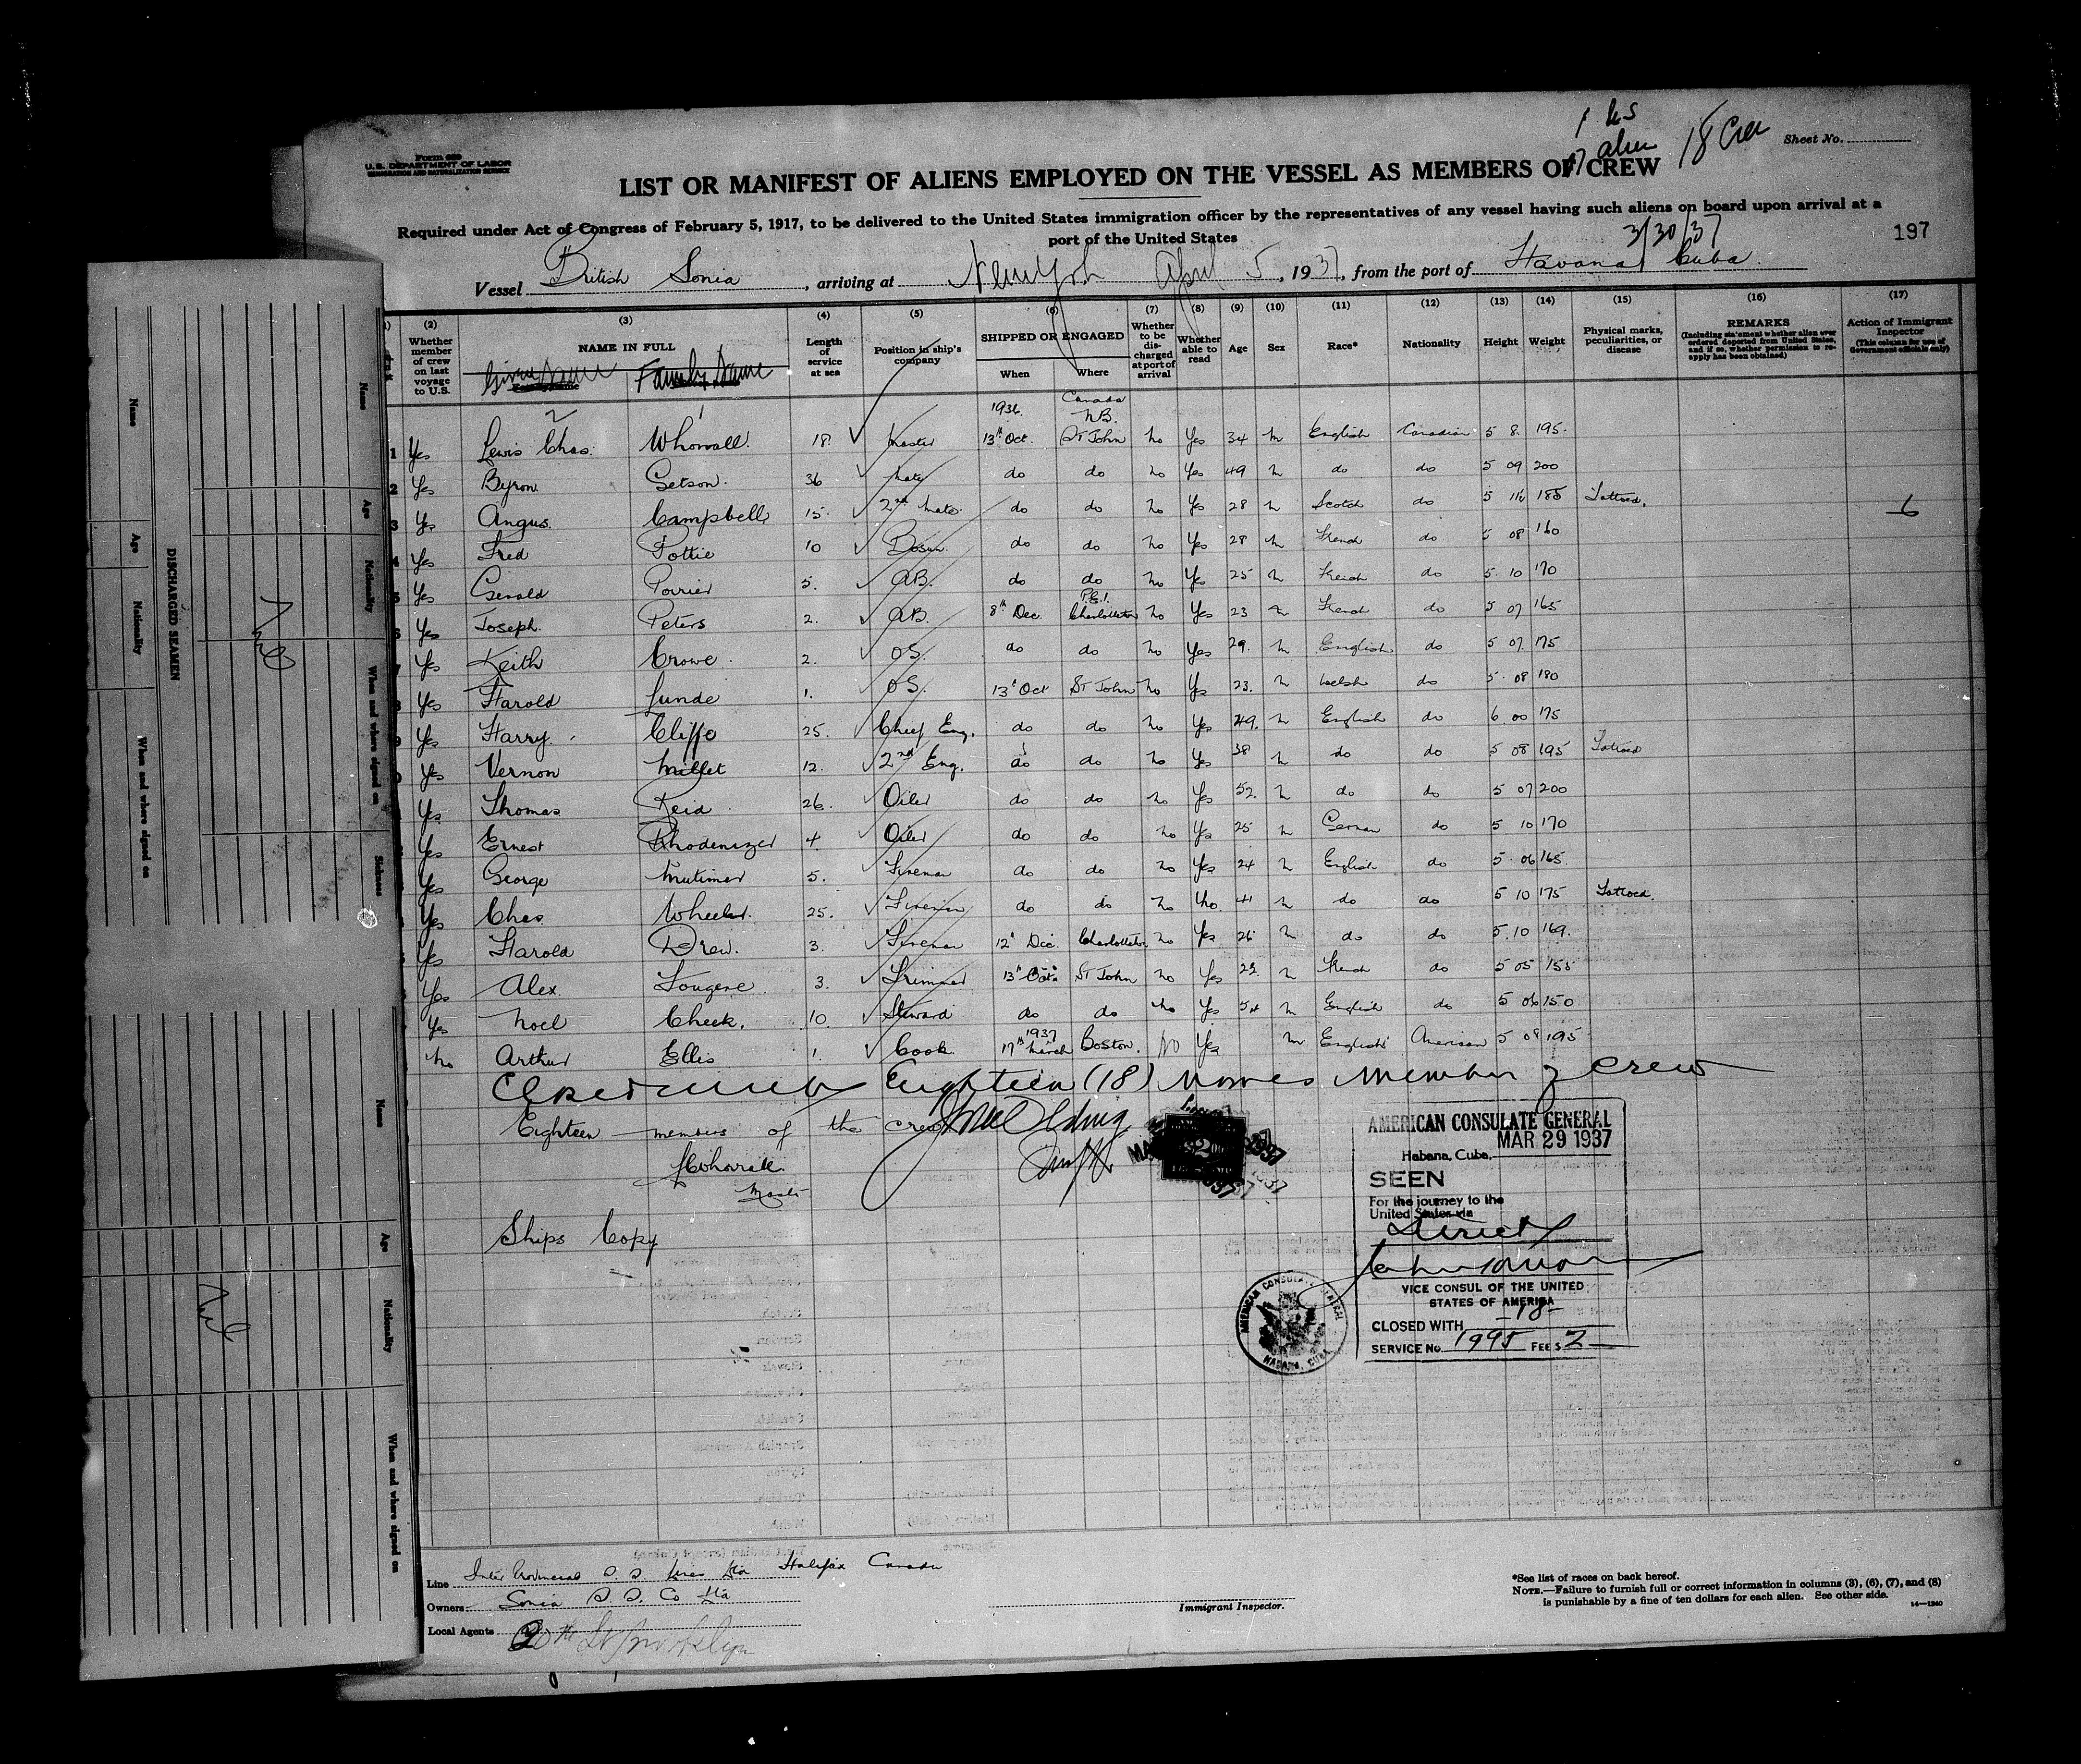 1 US
17 alien 18 Crew
Sheet No.
Form 689
U. S. DEPARTMENT OF LABOR
IMMIGRATION AND NATURALIZATION SERVICE
LIST OR MANIFEST OF ALIENS EMPLOYED ON THE VESSEL AS MEMBERS OF CREW
Required under Act of Congress of February 5, 1917, to be delivered to the United States immigration officer by the representatives of any vessel having such aliens on board upon arrival at a
port of the United States
3/30/37
197
Vessel British Sonia, arriving at New York April 5, 1937, from the port of Havana Cuba
(2) (3) (4) (5) (6) (7) (8) (9) (10) (11) (12) (13) (14) (15) (16) (17)
Whether member of crew on last voyage to U.S.
NAME IN FULL
Given Name Family Name
Length of service at sea
Position in ship's company
SHIPPED OR ENGAGED
When Where
Whether to be discharged at port of arrival
Whether able to read
Age
Sex
Race*
Nationality
Height
Weight
Physical marks, peculiarities, or disease
REMARKS
(Including statement whether alien ever ordered deported from United States, and if so, whether permission to reapply has been obtained)
Action of Immigrant Inspector
(This column for use of Government officials only)
2 1 1936. Canada N.B.
1 Yes Lewis Chas. Whorrall 18 Master 13th Oct. St John No Yes 34 M English Canadian 5 8 195
2 Yes Byron Getson 36 Mate do do No Yes 49 M do do 5 09 200
3 Yes Angus Campbell 15 2nd Mate do do No Yes 28 M Scotch do 5 11½ 185 Tattooed. 6
4 Yes Fred Pottie 10 Bosun do do No Yes 28 M French do 5 08 160
5 Yes Gerald Porrier 5 AB. do do No Yes 25 M French do 5 10 170
P.E.I.
6 Yes Joseph Peters 2 AB. 8th Dec Charlotteton No Yes 23 M French do 5 07 165
7 Yes Keith Crowe 2 OS. do do No Yes 29 M English do 5 07 175
8 Yes Harold 1 OS. 13th Oct St John No Yes 23 M Welsh do 5 08 180
9 Yes Harry Cliffe 25 Chief Eng. do do No Yes 49 M English do 6 00 175
Yes Vernon Millet 12 2nd Eng. do do No Yes 38 M do do 5 08 195 Tattooed
Yes Thomas Reid 26 Oiler do do No Yes 52 M do do 5 07 200
Yes Ernest Rhodenizer 4 Oiler do do No Yes 25 M German do 5 10 170
Yes George Mutimer 5 Fireman do do No Yes 24 M English do 5 06 165
Yes Chas Wheeler 25 Fireman do do No No 41 M do do 5 10 175 Tattooed.
Yes Harold Drew 3 Fireman 12th Dec. Charlotteton No Yes 26 M do do 5 10 169
Yes Alex Fougere 3 Trimmer 13th Oct. St John No Yes 22 M French do 5 05 155
Yes Noel Cheek 10 Steward do do No Yes 54 M English do 5 06 150
1937
No Arthur Ellis 1 Cook 17th March Boston. No Yes M English American 5 08 195
Closed with Eighteen (18) names member of crew
Eighteen members of the crew
Master
Ships Copy
AMERICAN CONSULATE GENERAL
MAR 29 1937
Habana, Cuba,
SEEN
For the journey to the
United States via
Direct
VICE CONSUL OF THE UNITED
STATES OF AMERICA
CLOSED WITH 18
SERVICE No. 1995 FEE $ 2
AMERICAN CONSULATE GENERAL
HABANA, CUBA
Line Inter Provincial S. S. Lines Ltd Halifax Canada
Owners Sonia S. S. Co Ltd
Local Agents
Immigrant Inspector.
*See list of races on back hereof.
NOTE.—Failure to furnish full or correct information in columns (3), (6), (7), and (8)
is punishable by a fine of ten dollars for each alien. See other side.
14—1240
DISCHARGED SEAMEN
Name Age Nationality When and where signed on
Name Age Nationality When and where signed on Sickness
Nil
Name Age Nationality When and where signed on
Nil